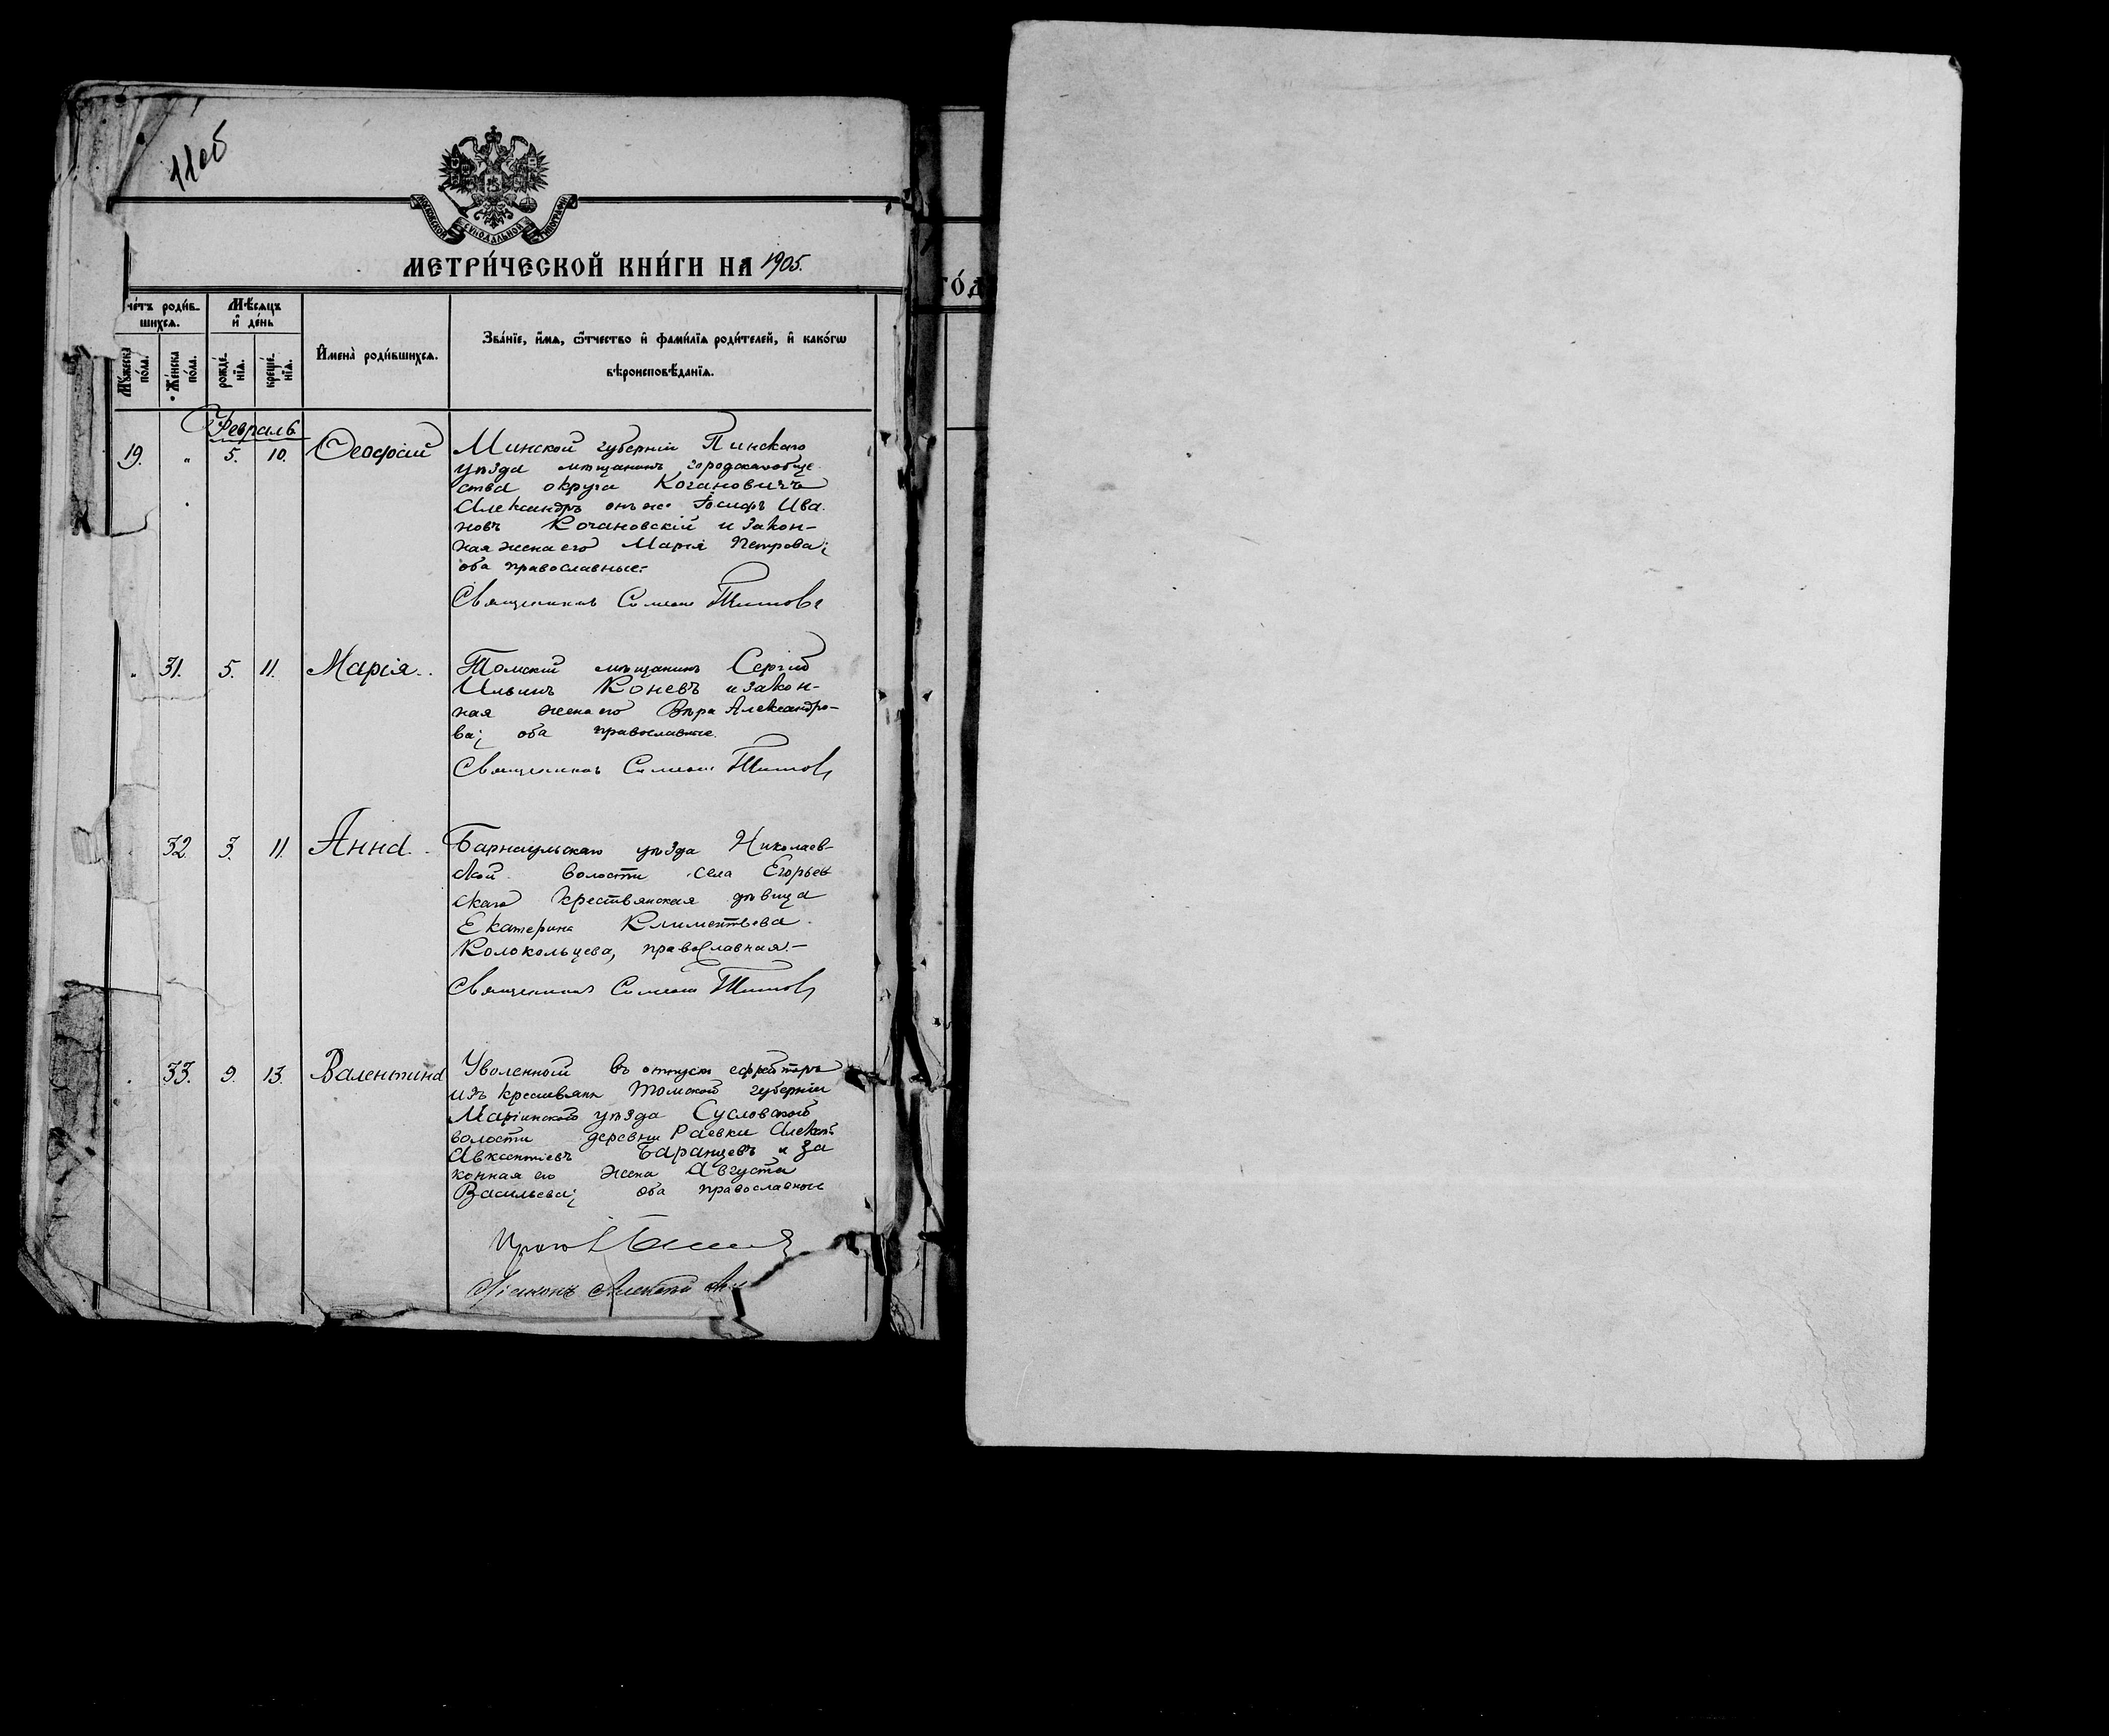 11об
МОСКОВСКОЙ СѴНОДАЛЬНОЙ ТИПОГРАФІИ
МЕТРИ́ЧЕСКОЙ КНИ́ГИ НА 1905.
ГО́Д
че́тъ роди́в-
шихсѧ.
Мѣ́сѧцъ
и҆ де́нь
Мꙋ́жеска
по́ла.
Же́нска
по́ла.
рожде́-
нїѧ.
креще́-
нїѧ.
И҆мена̀ роди́вшихсѧ.
Зва́нїе, и҆́мѧ, ѻ҆́тчество и҆ фами́лїѧ роди́телей, и҆ како́гѡ
вѣроисповѣ́данїѧ.
Февраль
19. " 5. 10. Ѳеофай Минской губерніи Пинскаго
уѣзда мѣщанинъ городского обще
ства округа Когановичъ
Александръ онъ же Іосифъ Ива
новъ Кочановскій и закон-
ная жена его Марія Петрова;
оба православные.
Священникъ Симеонъ Титовъ
" 31. 5. 11. Марія. Томскій мѣщанинъ Сергій
Ильинъ Коневъ и закон-
ная жена его Вѣра Александро-
ва; оба православные.
Священникъ Симеонъ Титовъ
32 3. 11. Анна. Барнаульскаго уѣзда Николаев-
ской волости села Егорьев
скаго крестьянская дѣвица
Екатерина Климентьева
Колокольцева, православная.-
Священникъ Симеонъ Титовъ
33. 9. 13. Валентина Уволенный въ отпускъ ефрейторъ
изъ крестьянъ Томской губерніи
Маріинскаго уѣзда Сусловской
волости деревни Раевки Алексѣй
Авксентіевъ Баранцевъ и за
конная его жена Августа
Васильева; оба православные
Прото
Діаконъ Алексѣй